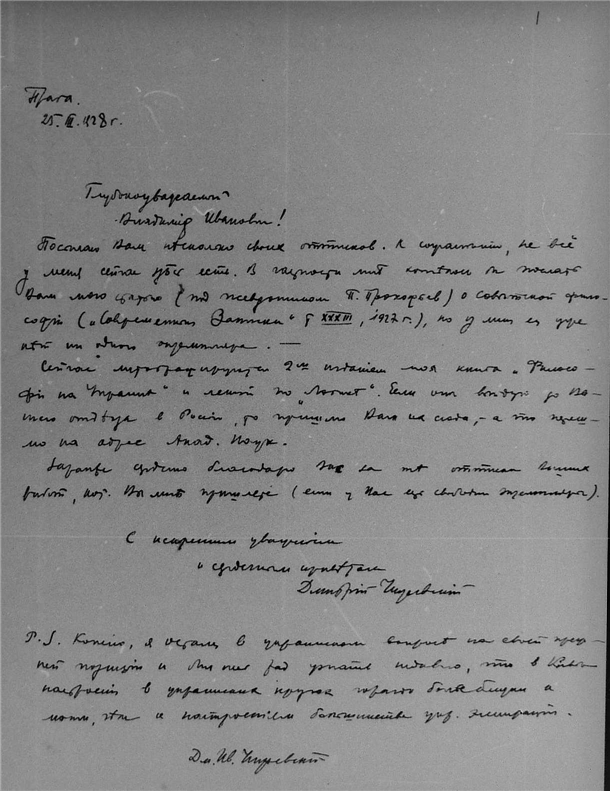 1
Прага.
25. III. 1928 г.
Глубокоуважаемый
Владимір Иванович!
Посылаю Вам нѣсколько своих оттисков. К сожалѣнію, не всё
у меня сейчас здѣсь есть. В частности мнѣ хотѣлось бы послать
Вам мою статью (под псевдонимом П. Прокофьев) о совѣтской фило-
софіи („Современныя Записки" § XXXIII, 1927 г.), но у меня ея уже
нѣт ни одного экземпляра. —
Сейчас печатаются 2-ым изданіем моя книга „Филосо-
фія на Украинѣ" и лекціи по „Логикѣ". Если они выйдут до Ва-
шего отъѣзда в Россію, то пришлю Вам их сюда, - а то переш-
лю на адрес Акад. Наук.
Заранѣе сердечно благодарю Вас за тѣ оттиски Ваших
работ, кот. Вы мнѣ пришлете (если у Вас еще свободны экземпляры).
С искренним уваженіем
и сердечным привѣтом
Дмитрій Чижевскій
P.S. Конечно, я остаюсь в украинском вопросѣ на своей преж-
ней позиціи и был рад узнать недавно, что в Кіевѣ
настроенія в украинских кругах гораздо болѣе близки к
моим, чѣм к настроеніям большинства укр. эмиграціи.
Дм. Ив. Чижевскій